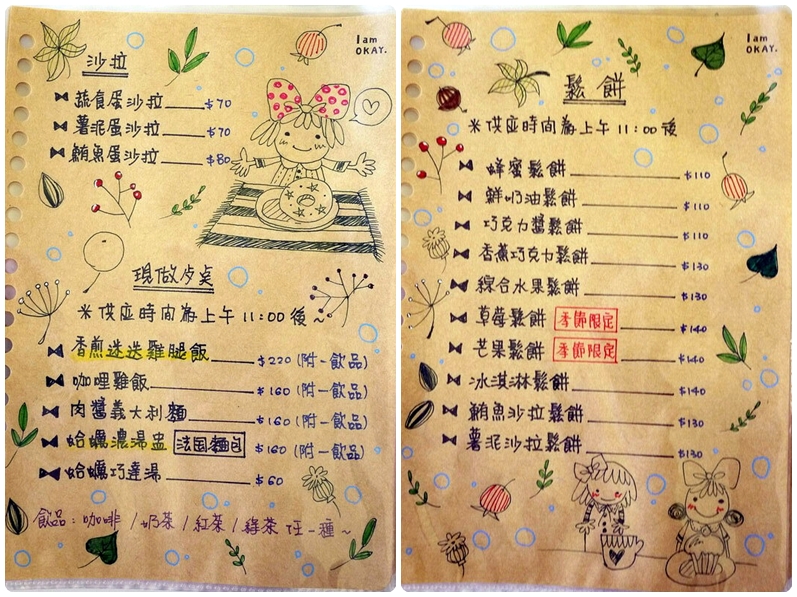 I am
OKAY.
沙拉
蔬食蛋沙拉 $70
薯泥蛋沙拉 $70
鮪魚蛋沙拉 $80
現做夕桌
※供應時間為上午11:00後~
香煎迷迭雞腿飯 $220 (附一飲品)
咖哩雞飯 $160 (附一飲品)
肉醬義大利麵 $160 (附一飲品)
蛤蠣濃湯盅 法国麵包 $160 (附一飲品)
蛤蠣巧達湯 $60
飲品:咖啡/奶茶/紅茶/綠茶 任一種~
I am
OKAY.
鬆餅
※供應時間為上午11:00後
蜂蜜鬆餅 $110
鮮奶油鬆餅 $110
巧克力醬鬆餅 $110
香蕉巧克力鬆餅 $130
綜合水果鬆餅 $130
草莓鬆餅 季節限定 $140
芒果鬆餅 季節限定 $140
冰淇淋鬆餅 $140
鮪魚沙拉鬆餅 $130
薯泥沙拉鬆餅 $130